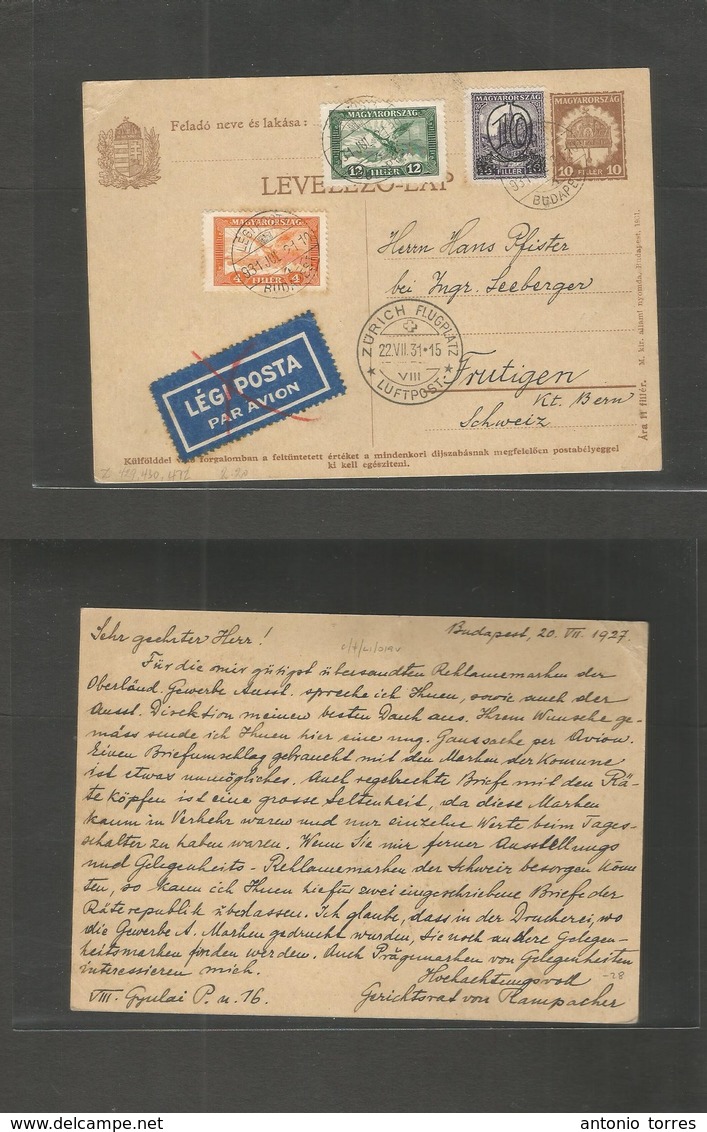 Feladó neve és lakása :
MAGYARORSZÁG
12 FILLÉR 12
MAGYARORSZÁG
10
FILLÉR
MAGYARORSZÁG
10 FILLÉR 10
931
BUDAPEST
LEVELEZŐ-LAP
MAGYARORSZÁG
4 FILLÉR 4
931 JUL. 21
BUD
Herrn Hans Pfister
bei Ingr. Seeberger
ZÜRICH FLUGPLATZ
22.VII.31•15
VIII
LUFTPOST
Frutigen
Kt. Bern
Schweiz
LÉGI POSTA
PAR AVION
Ára 11 fillér. M. kir. állami nyomda, Budapest, 1931.
Külfölddel való forgalomban a feltüntetett értéket a mindenkori díjszabásnak megfelelően postabélyeggel
ki kell egészíteni.
Budapest, 20. VII. 1927.
Sehr geehrter Herr!
Für die mir gütigst übersandten Reklamemarken der
Oberländ. Gewerbe Ausst. spreche ich Ihnen, sowie auch der
Ausst. Direktion meinen besten Dank aus. Ihrem Wunsche ge-
mäss sende ich Ihnen hier eine ung. Ganzsache per Avion.
Einen Briefumschlag gebraucht mit den Marken der Komune
ist etwas unmögliches. Auch regebrechte Briefe mit den Rä-
te köpfen ist eine grosse Seltenheit, da diese Marken
kaum in Verkehr waren und nur einzelne Werte beim Tages-
schalter zu haben waren. Wenn Sie mir ferner Ausstellungs
und Gelegenheits-Reklamemarken der Schweiz besorgen könn
ten, so kann ich Ihnen hiefür zwei eingeschriebene Briefe der
Räterepublik überlassen. Ich glaube, dass in der Druckerei, wo
die Gewerbe A. Marken gedruckt wurden, Sie noch andere Gelegen-
heitsmarken finden werden. Auch Prägemarken von Gelegenheiten
interessieren mich.
Hochachtungsvoll
-28
VIII. Gyulai P. u. 16.
Gerichtsrat von Rampacher
antonio torres